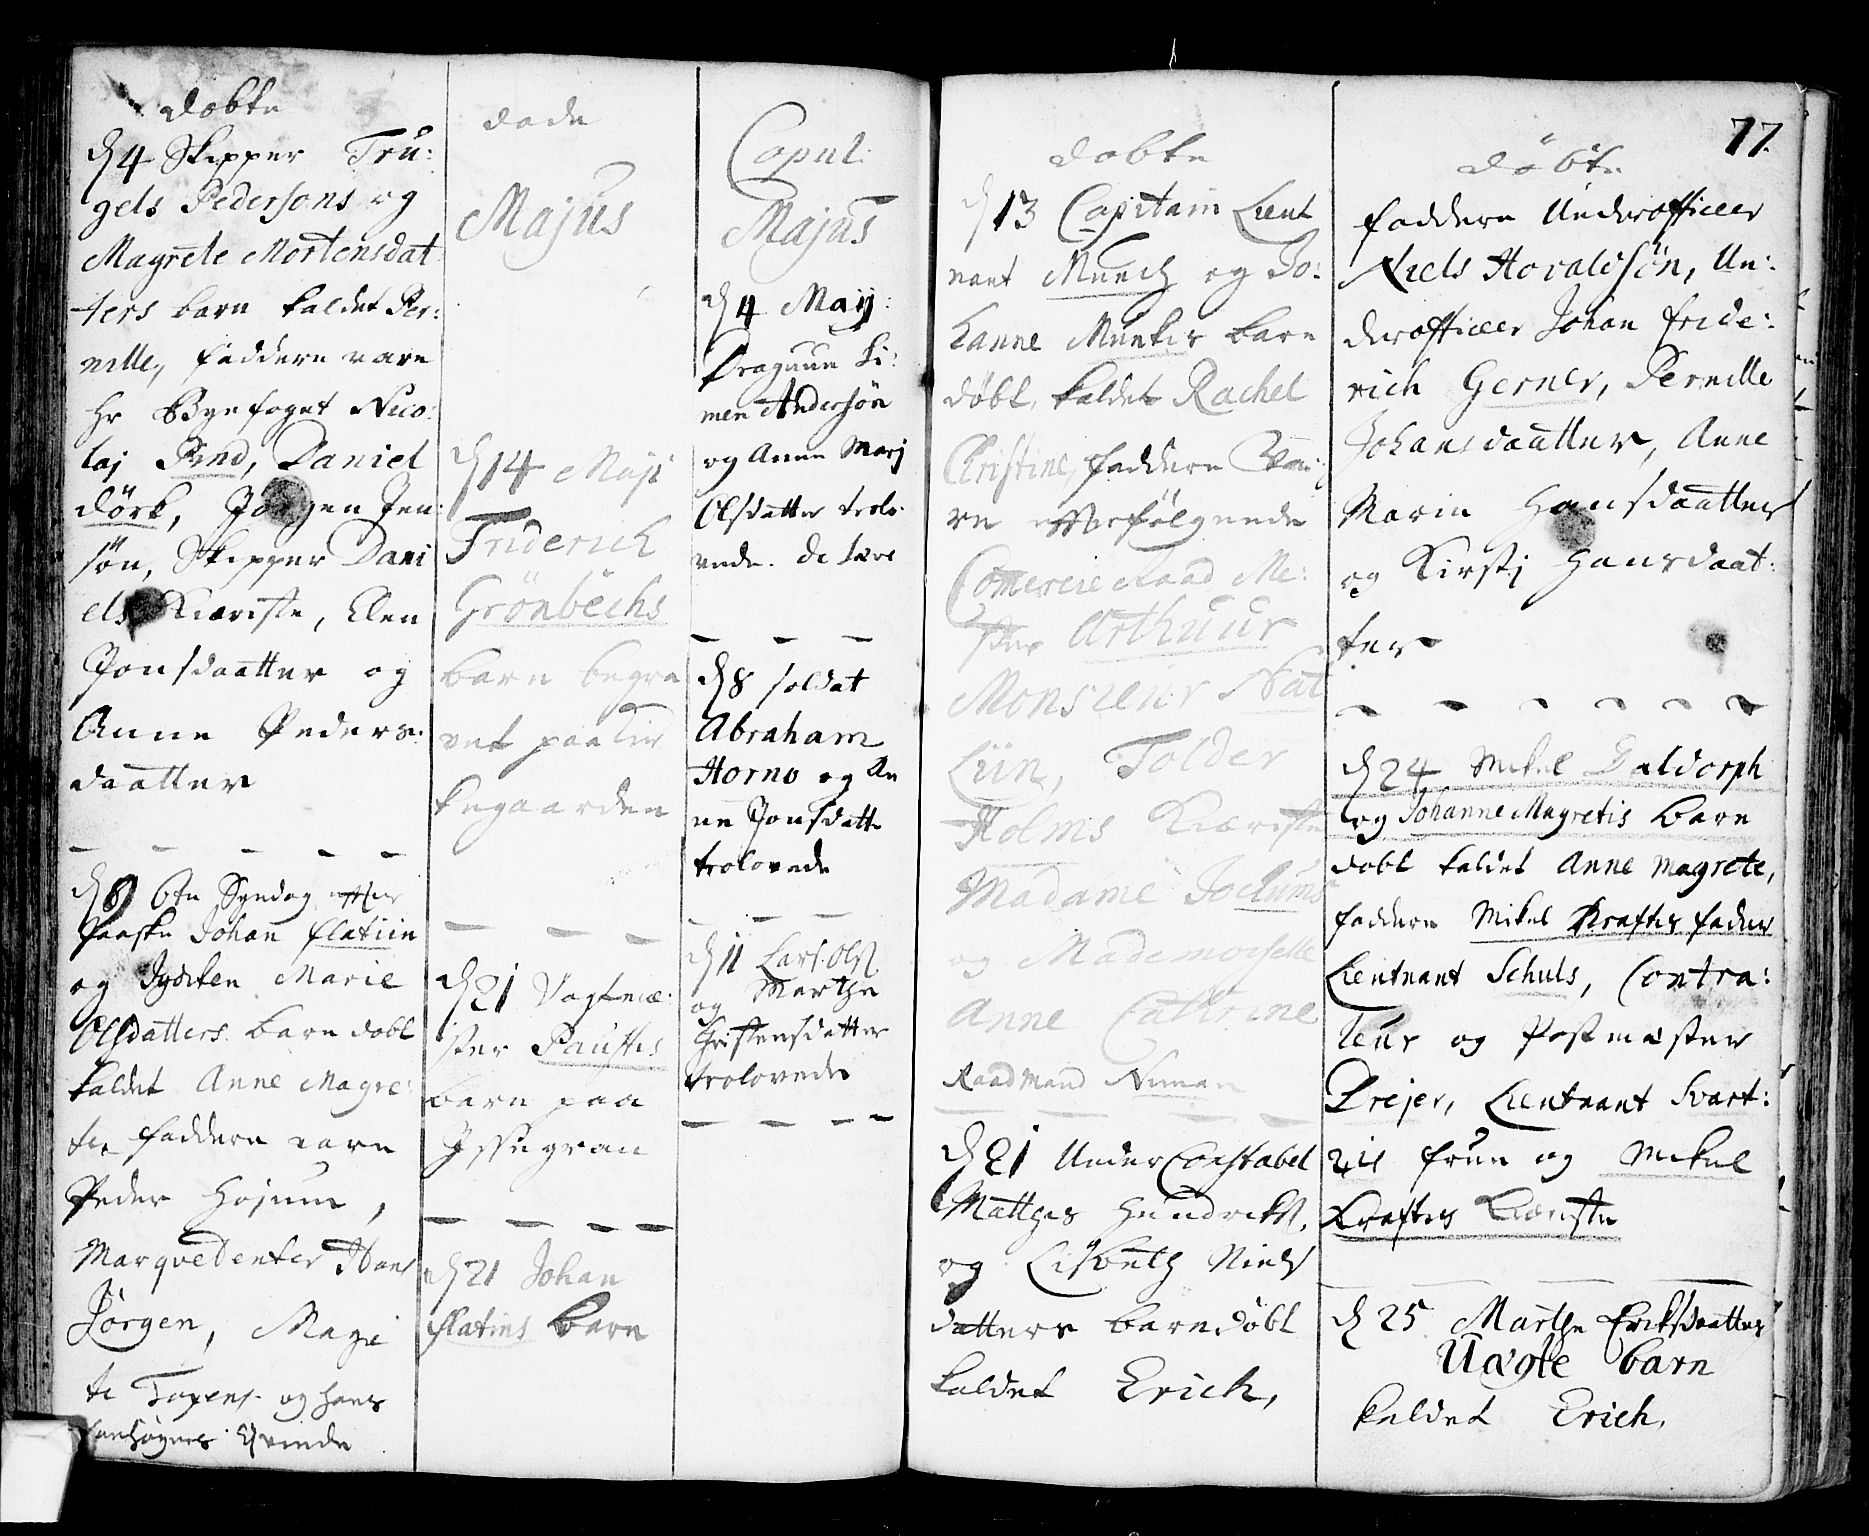 døbte
d 4 Skipper Tru:
gels Pedersøns og
Magrete Mortensdat
ters barn kaldet Per:
nille, faddere vare
Hr Byefoget Nico:
laj Pind, Daniel
dörk, Jörgen Jen
søn, Skipper Dani
els Kiæriste, Elen
Jonsdaatter og
Anne Peders:
daatter
d 6te Syndag efter
Paaske Johan Flatiin
og Marie
Olsdatters barn døbt
kaldet Anne Magre:
te faddere vare
Peder Hojum,
Marqvedenter Hans
Jørgen, Magre
te og Hans
Qvinde
døde
Majus
d 14 Maji
Friderich
Grönbechs
barn begra
vet paa Kir
kegaarden
d 21 Vagtmæ:
ster Paustes
barn paa
Issegran
d 21 Johan
Flatins barn
Copul:
Majus
d 4 Maij:
Dragoun Si:
men Andersøn
og Anne Marj
Olsdatter trolo:
vede.
d 8 soldat
Abraham
Horno og An
ne Jonsdatter
trolovede
d 11 Lars Ols
og Marthe
Christensdatter
trolovede
døbte
d 13 Capitain Lieut
nant Munch og Jo:
hanne Munkes barn
døbt, kaldet Rachel
Christine, faddere va:
re efterfölgende
Comercie Raad Me:
ster Arthuur
Monsieur Nat
Liin, Tolder
Holms Kiæriste
Madame Jochums
og Mademoiselle
Anne Cathrine
Raadmand Niman
d 21 Under Constabel
Matthes Hendrichs.
og Lisbeth Niels
datters barn döbt
kaldet Erich,
77.
döbte
faddere Underofficeer
Niels Hovaldsön, Un:
derofficeer Johan Fride:
rich Gerner, Pernille
Johansdaatter, Anne
Marie Hansdaatter
og Kirstj Hansdaat:
ter
d 24 Mikel Galdorph
og Johanne Magretis barn
døbt kaldet Anne Magrete,
faddere Mikel Kraftes fader
Lieutnant Schuls, Contra:
leur og Postmester
Drejer, Lieutnant Svart:
frue og Mikel
Kraftes Kiæriste
d 25 Marthe Eriksdaatters
Uægte barn
kaldet Erich,